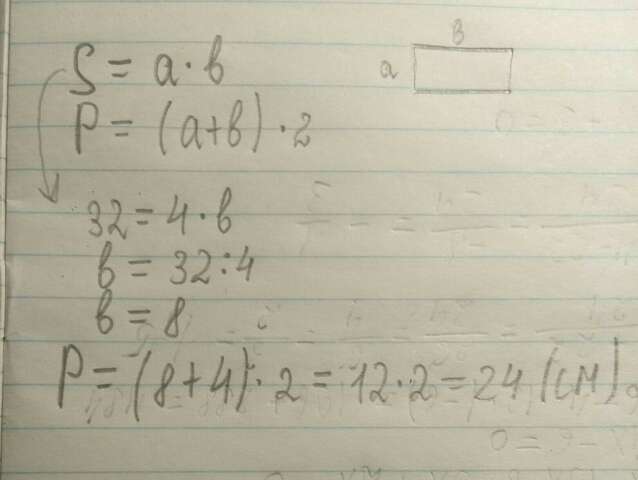 S = a · b
P = (a+b) · 2
b
a
32 = 4 · b
b = 32 : 4
b = 8
P = (8+4) · 2 = 12 · 2 = 24 (см).